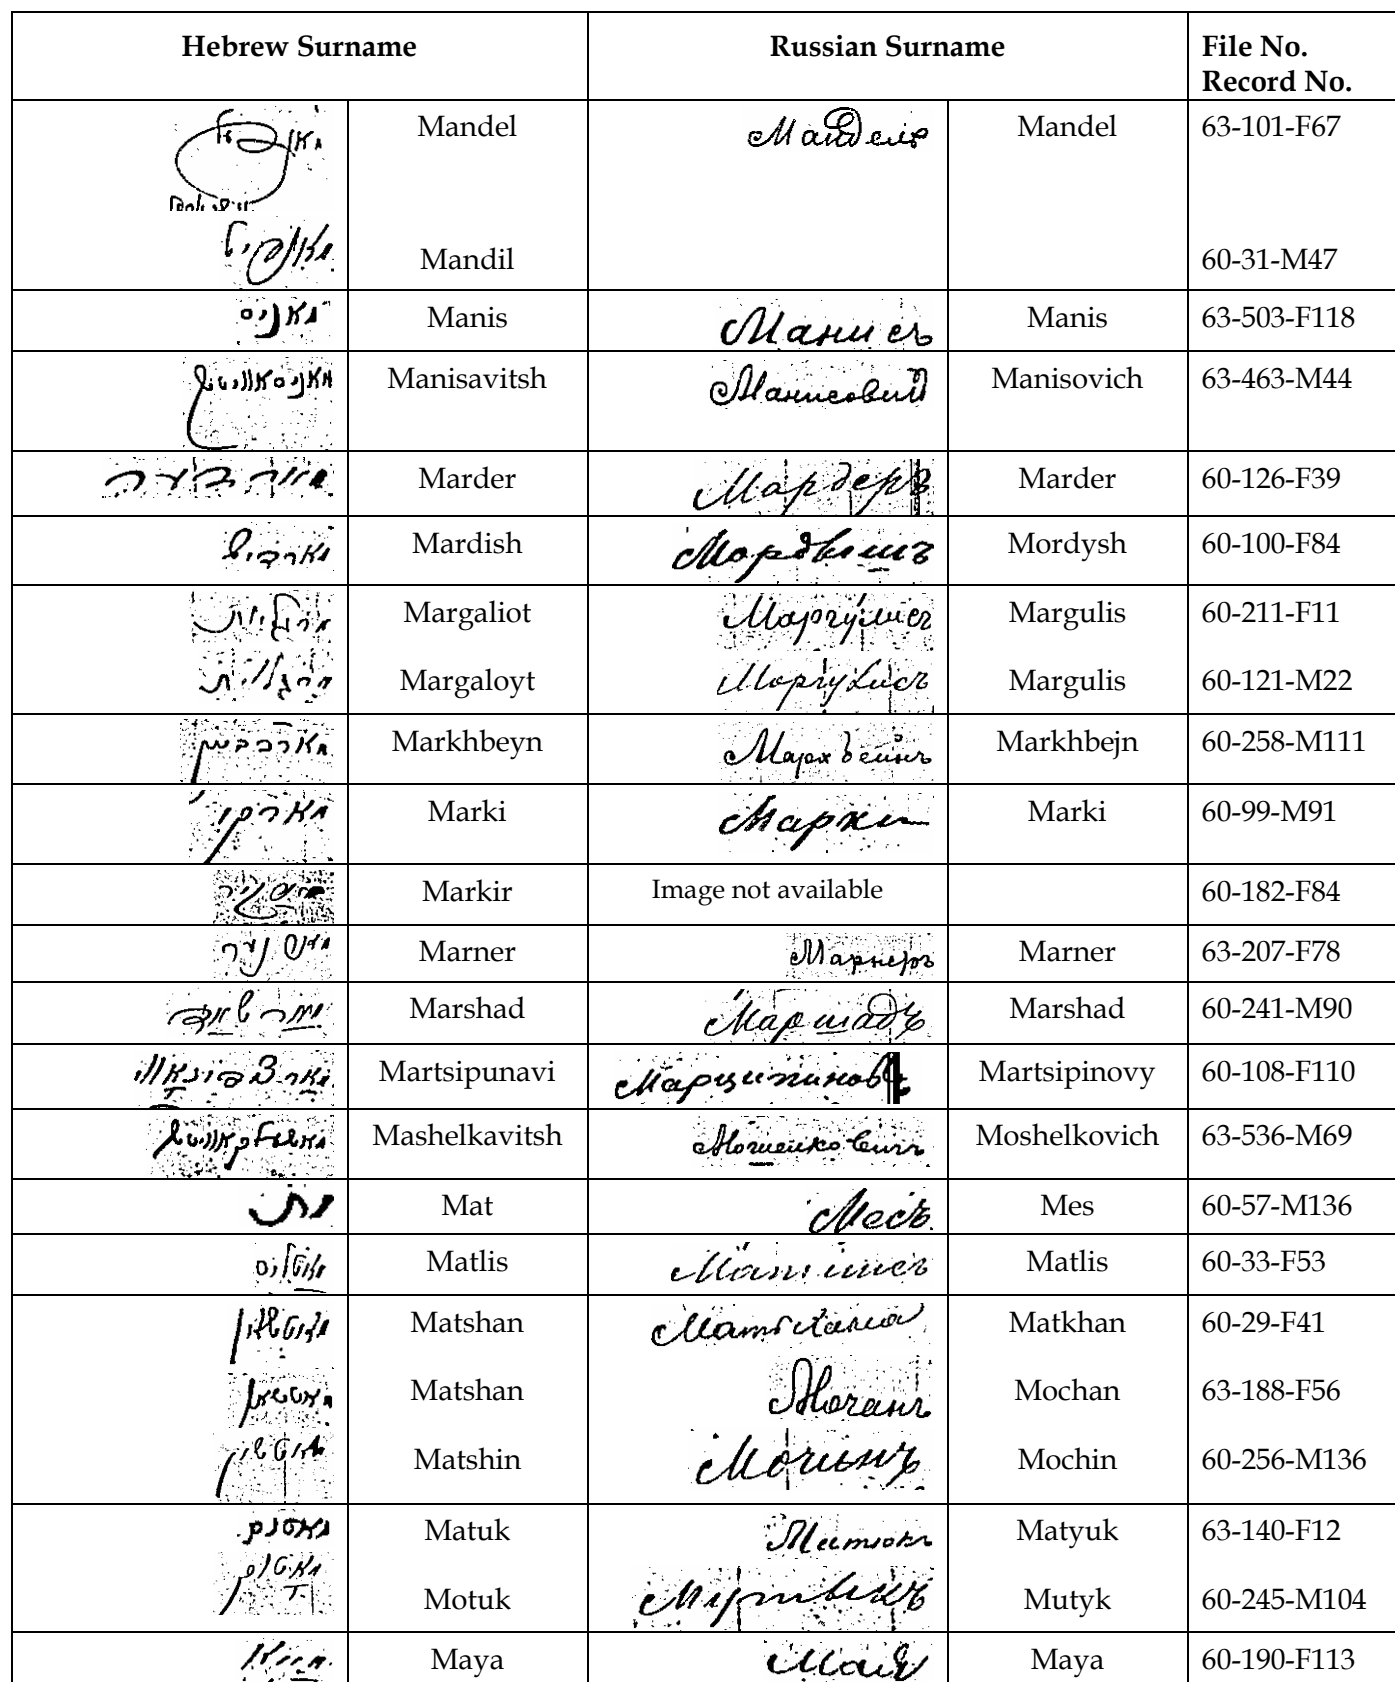 Hebrew Surname Russian Surname File No.
Record No.
מאנדעל Mandel Мандель Mandel 63-101-F67
Mandil 60-31-M47
מאניס Manis Манисъ Manis 63-503-F118
מאניסאוויטש Manisavitsh Манисовичъ Manisovich 63-463-M44
Marder Мардеръ Marder 60-126-F39
מארדיש Mardish Мордышъ Mordysh 60-100-F84
מרגליות Margaliot Маргулисъ Margulis 60-211-F11
Margaloyt Маргулисъ Margulis 60-121-M22
Markhbeyn Мархбейнъ Markhbejn 60-258-M111
מארקי Marki Марки Marki 60-99-M91
Markir Image not available 60-182-F84
Marner Марнеръ Marner 63-207-F78
Marshad Маршадъ Marshad 60-241-M90
Martsipunavi Марципиновъ Martsipinovy 60-108-F110
Mashelkavitsh Moshelkovich 63-536-M69
מת Mat Месъ Mes 60-57-M136
מאטליס Matlis Матлисъ Matlis 60-33-F53
Matshan Matkhan 60-29-F41
מאטשאן Matshan Мочанъ Mochan 63-188-F56
מאטשין Matshin Мочинъ Mochin 60-256-M136
מאטוק Matuk Матюкъ Matyuk 63-140-F12
מאטוק Motuk Мутыкъ Mutyk 60-245-M104
Maya Мая Maya 60-190-F113